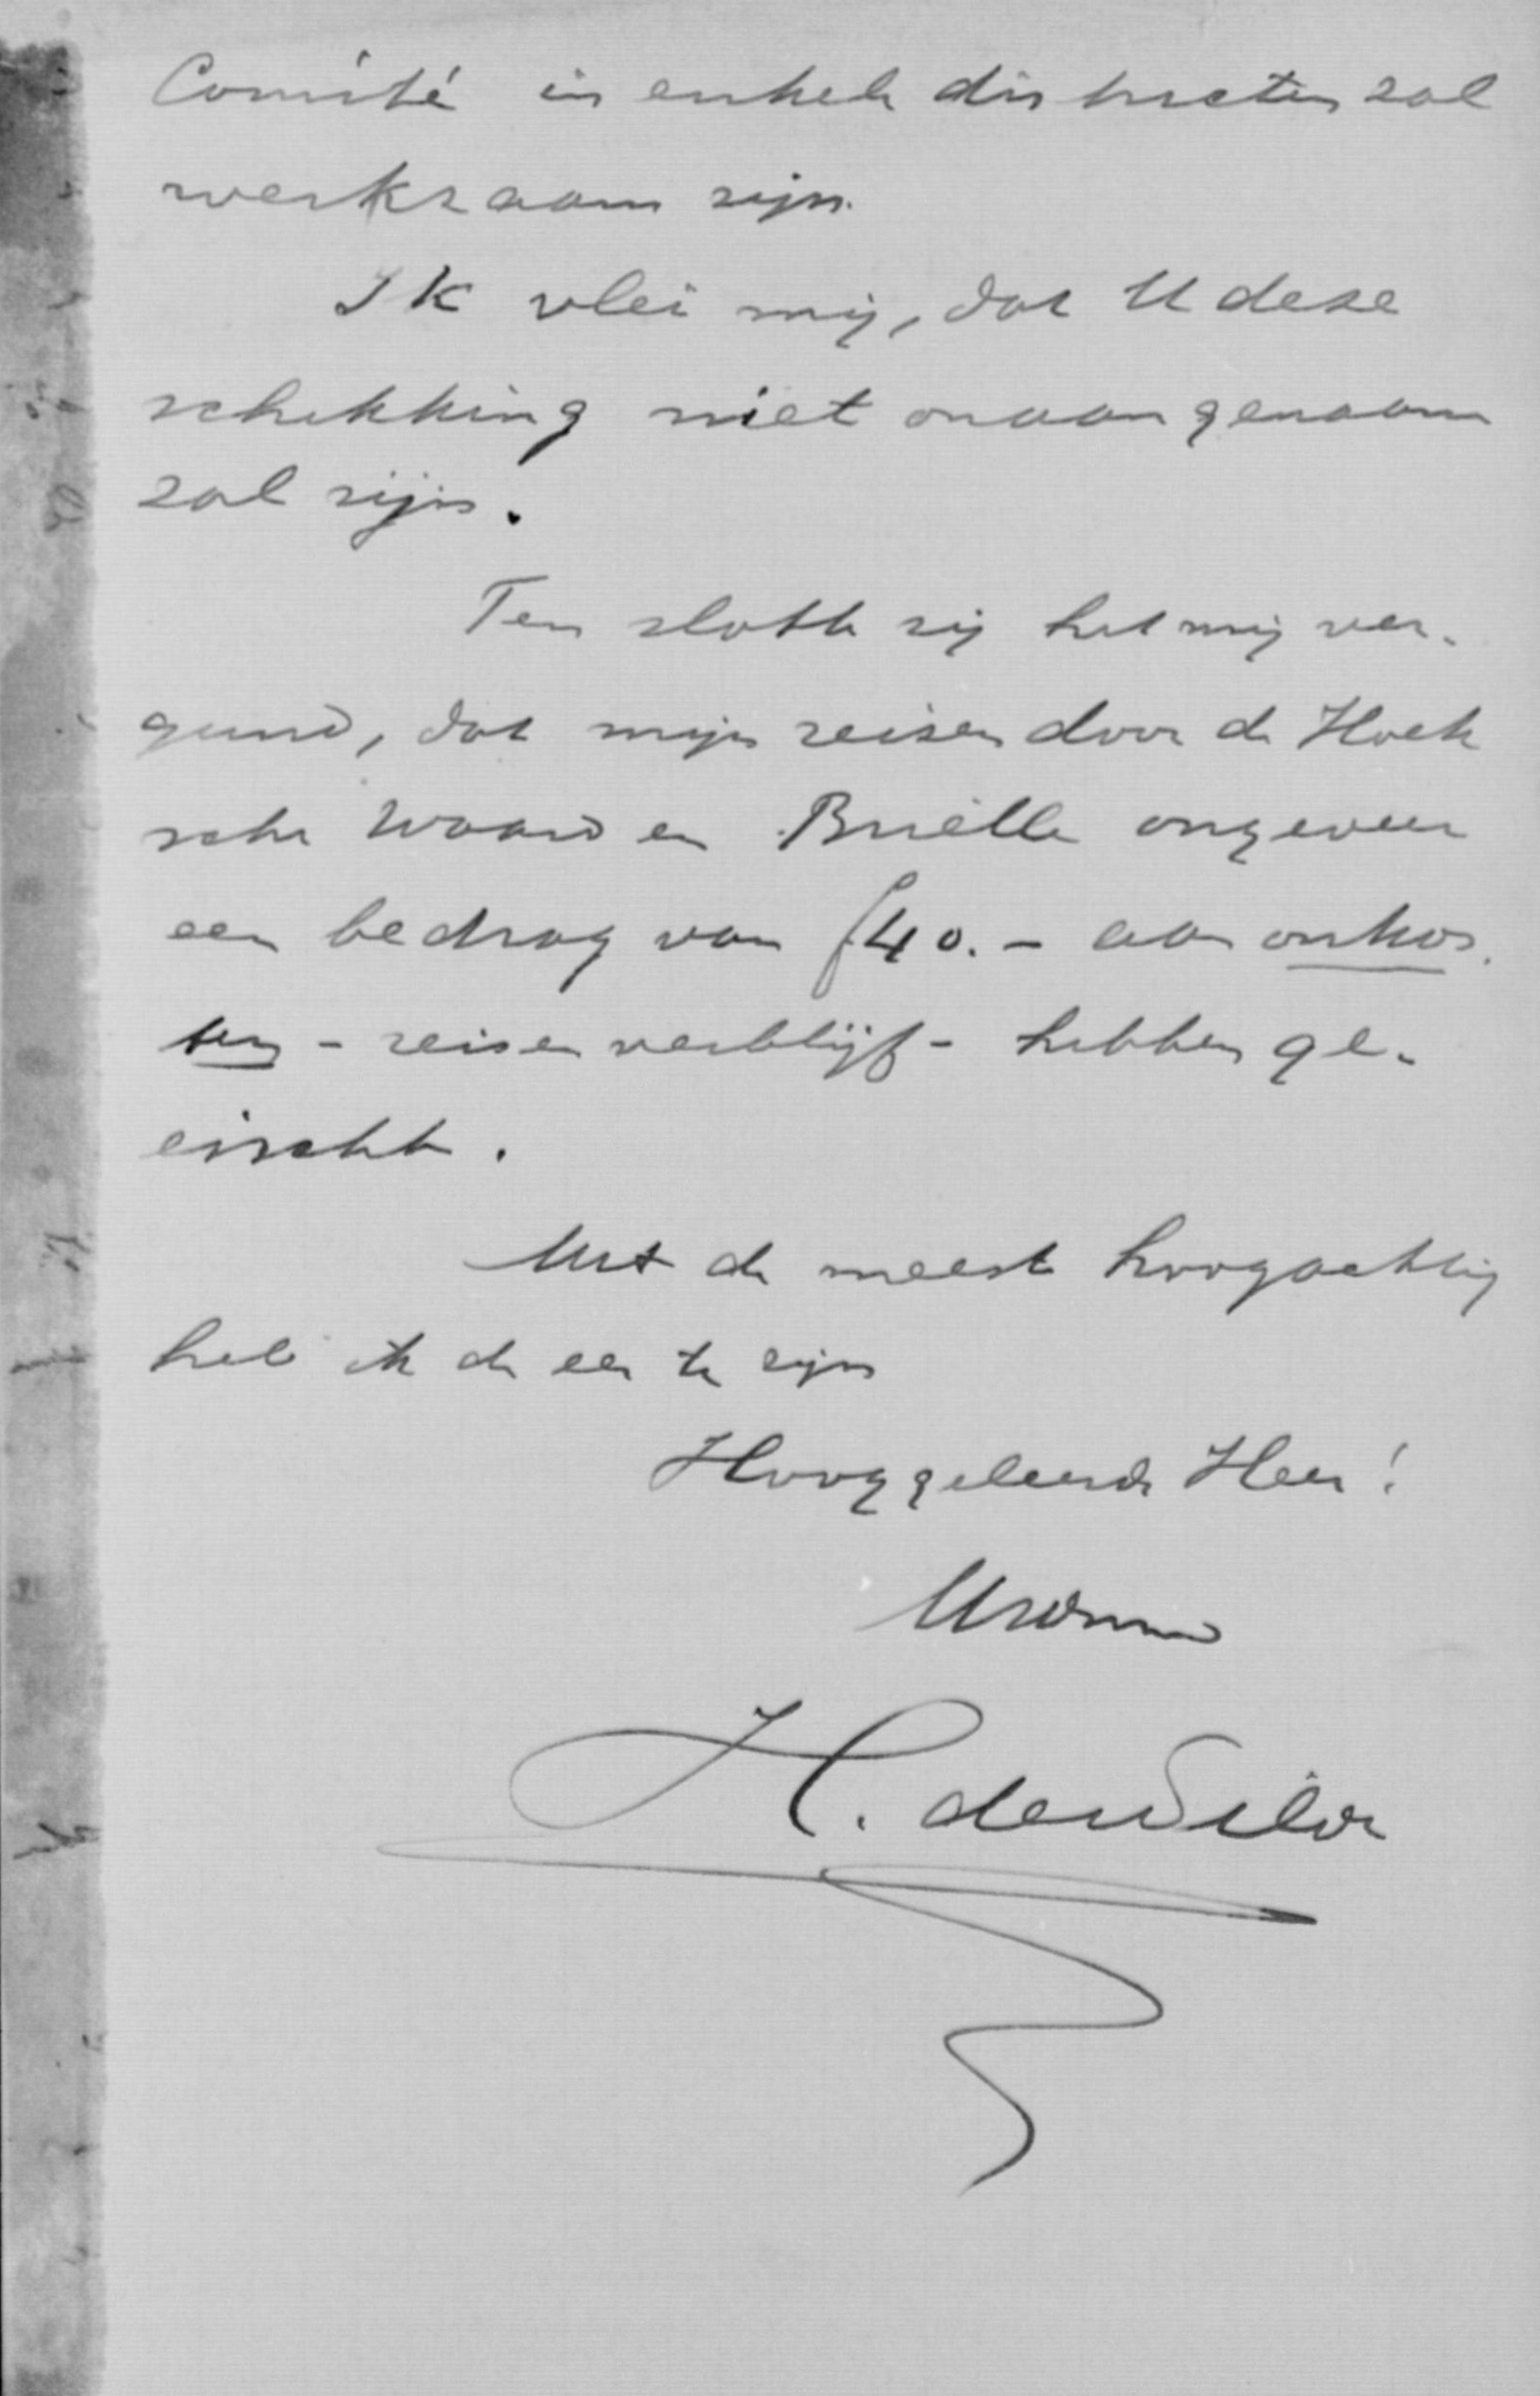 Comité in enkele districten zal
werkzaam zijn.
Ik vlei mij, dat U deze
schikking niet onaangenaam
zal zijn.
Ten slotte zij het mij ver-
gund, dat mijn reizen door de Hoek
sche Waard en Brielle ongeveer
een bedrag van f 40.- aan onkos-
ten - reis en verblijf - hebben ge-
eischt.
Met de meeste hoogachting
heb ik de eer te zijn
Hooggeleerde Heer!
H. de Wilde